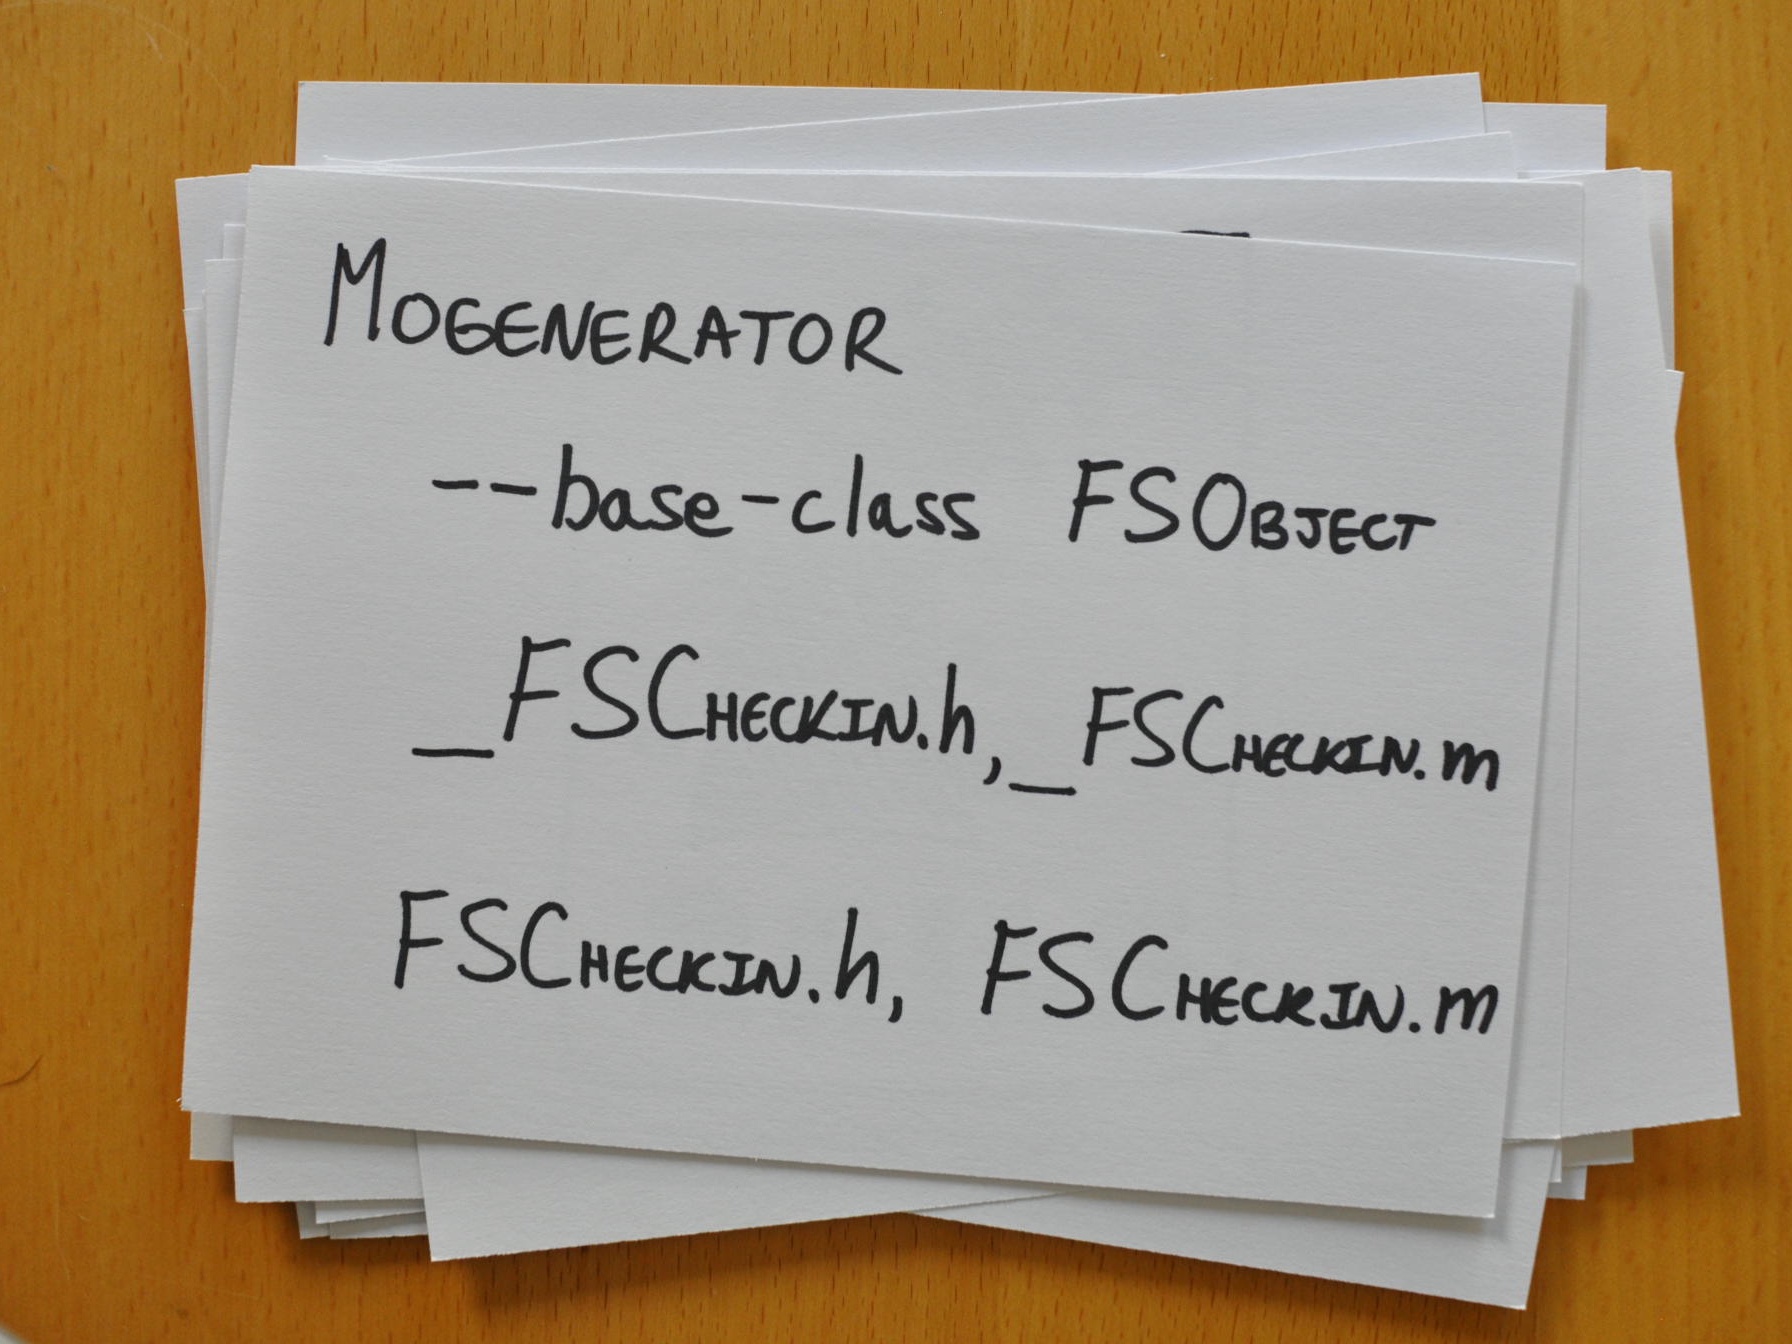 MOGENERATOR
--base-class FSOBJECT
_FSCHECKIN.h, _FSCHECKIN.m
FSCHECKIN.h, FSCHECKIN.m